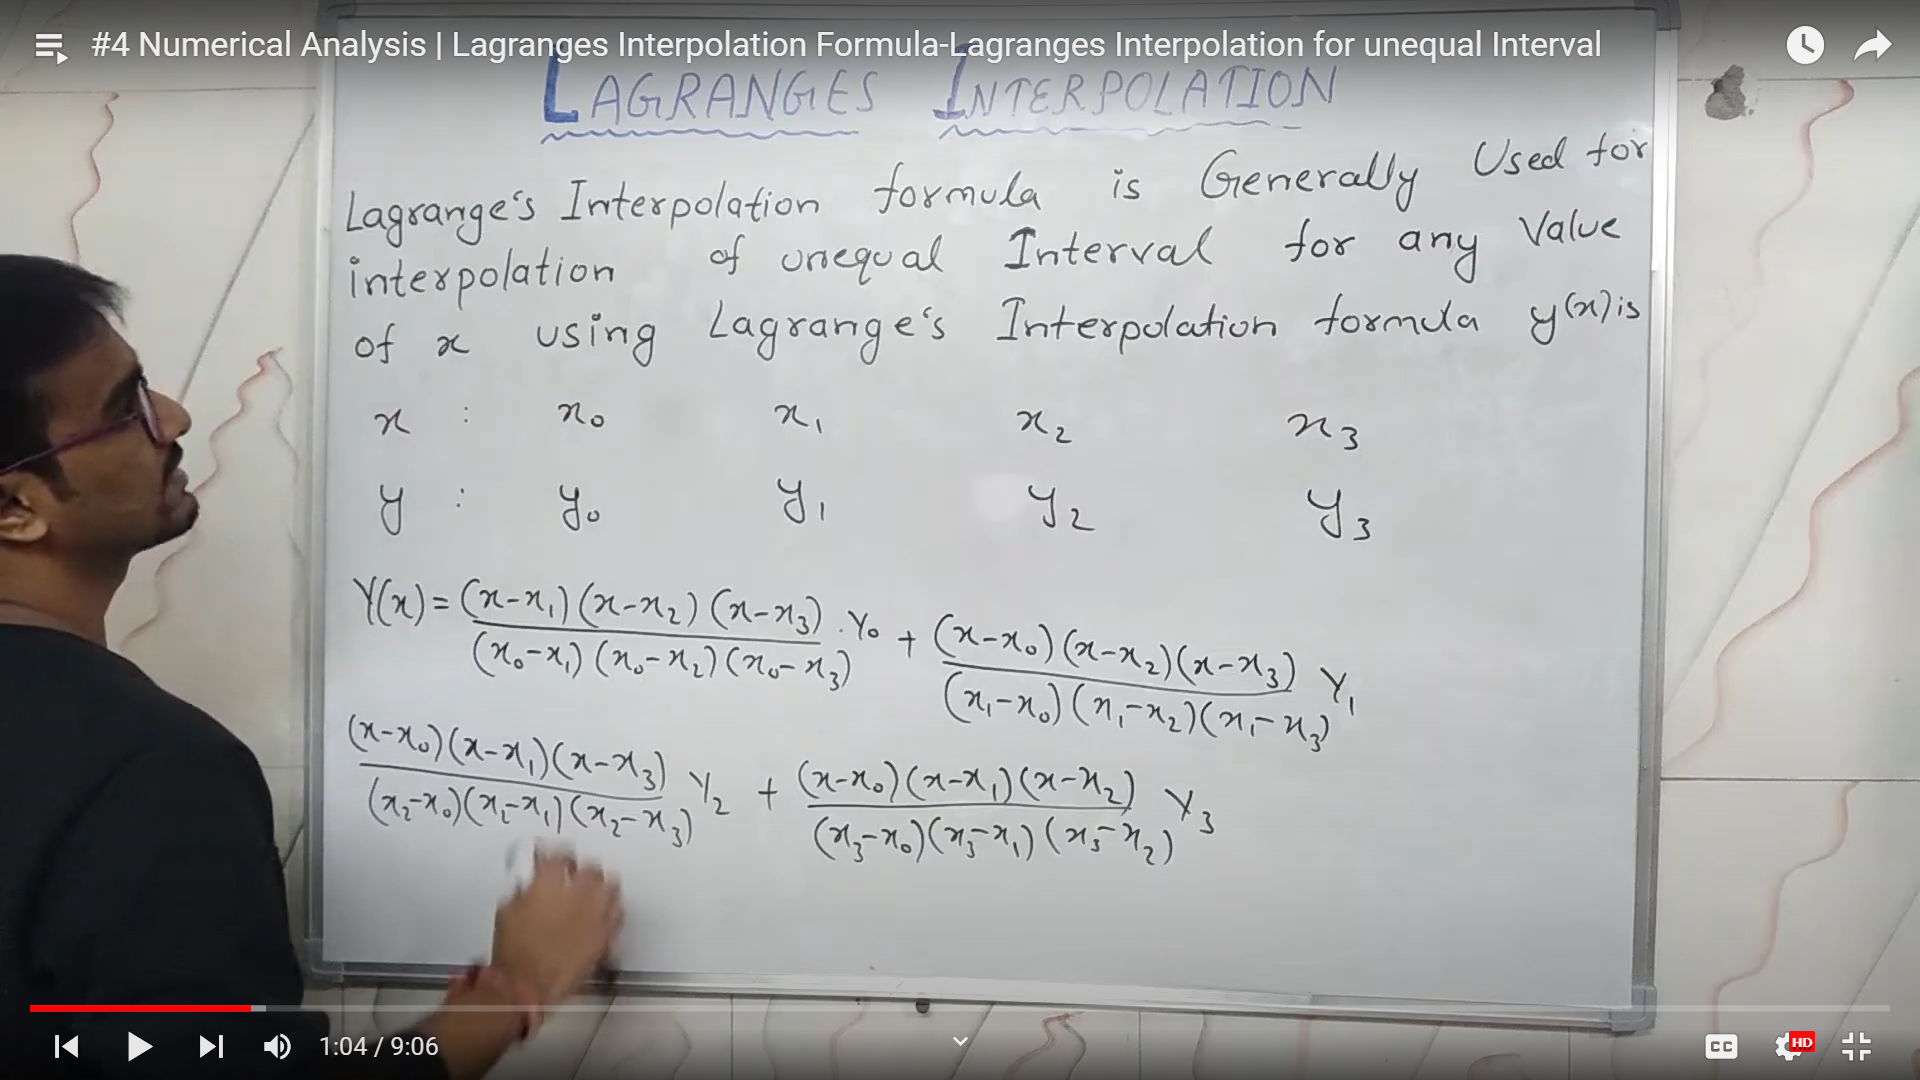 #4 Numerical Analysis | Lagranges Interpolation Formula-Lagranges Interpolation for unequal Interval
LAGRANGES INTERPOLATION
Lagrange's Interpolation formula is Generally Used for
interpolation of unequal Interval for any Value
of x using Lagrange's Interpolation formula y(x) is
x : x₀ x₁ x₂ x₃
y : y₀ y₁ y₂ y₃
Y(x) = (x-x₁)(x-x₂)(x-x₃) / (x₀-x₁)(x₀-x₂)(x₀-x₃) . Y₀ + (x-x₀)(x-x₂)(x-x₃) / (x₁-x₀)(x₁-x₂)(x₁-x₃) Y₁
(x-x₀)(x-x₁)(x-x₃) / (x₂-x₀)(x₂-x₁)(x₂-x₃) Y₂ + (x-x₀)(x-x₁)(x-x₂) / (x₃-x₀)(x₃-x₁)(x₃-x₂) Y₃
1:04 / 9:06
CC
HD